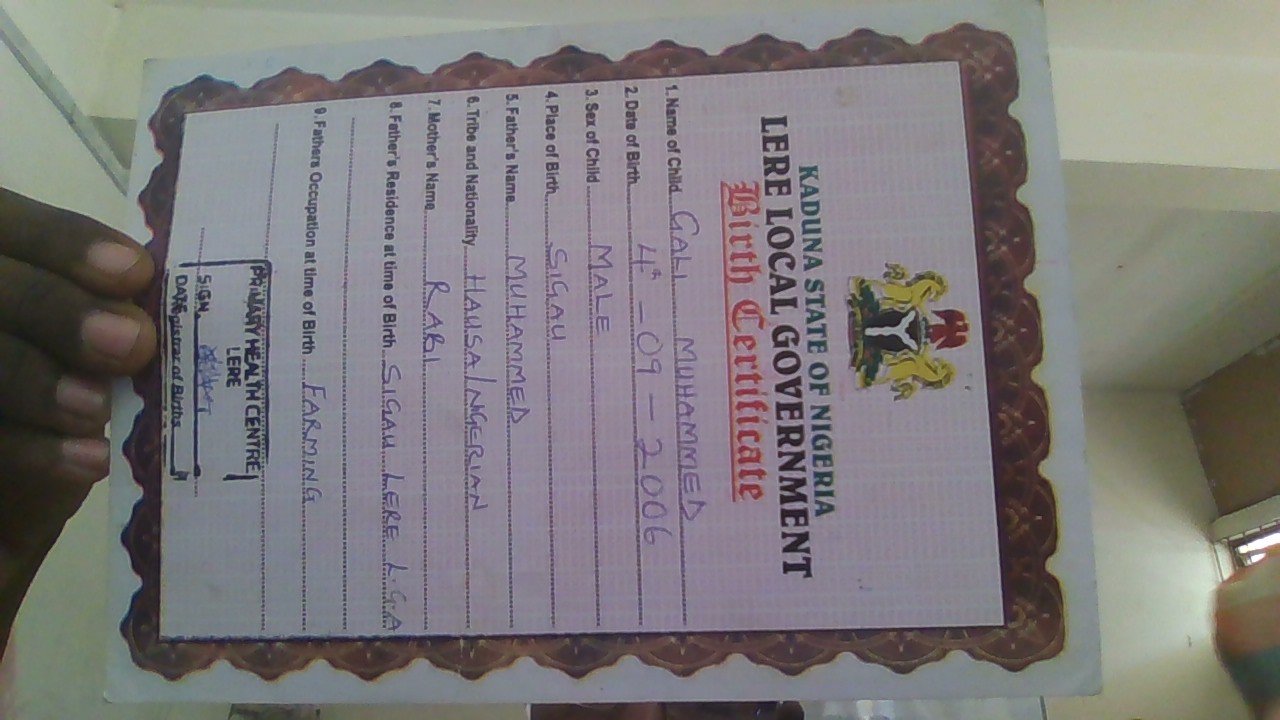 KADUNA STATE OF NIGERIA
LERE LOCAL GOVERNMENT
Birth Certificate
1. Name of Child GALI MUHAMMED
2. Date of Birth 4th - 09 - 2006
3. Sex of Child MALE
4. Place of Birth SIGAU
5. Father's Name MUHAMMED
6. Tribe and Nationality HAUSA/NIGERIAN
7. Mother's Name RABI
8. Father's Residence at time of Birth SIGAU LERE L.G.A
9. Fathers Occupation at time of Birth FARMING
PRIMARY HEALTH CENTRE
LERE
SIGN
DATE
Registrar of Births